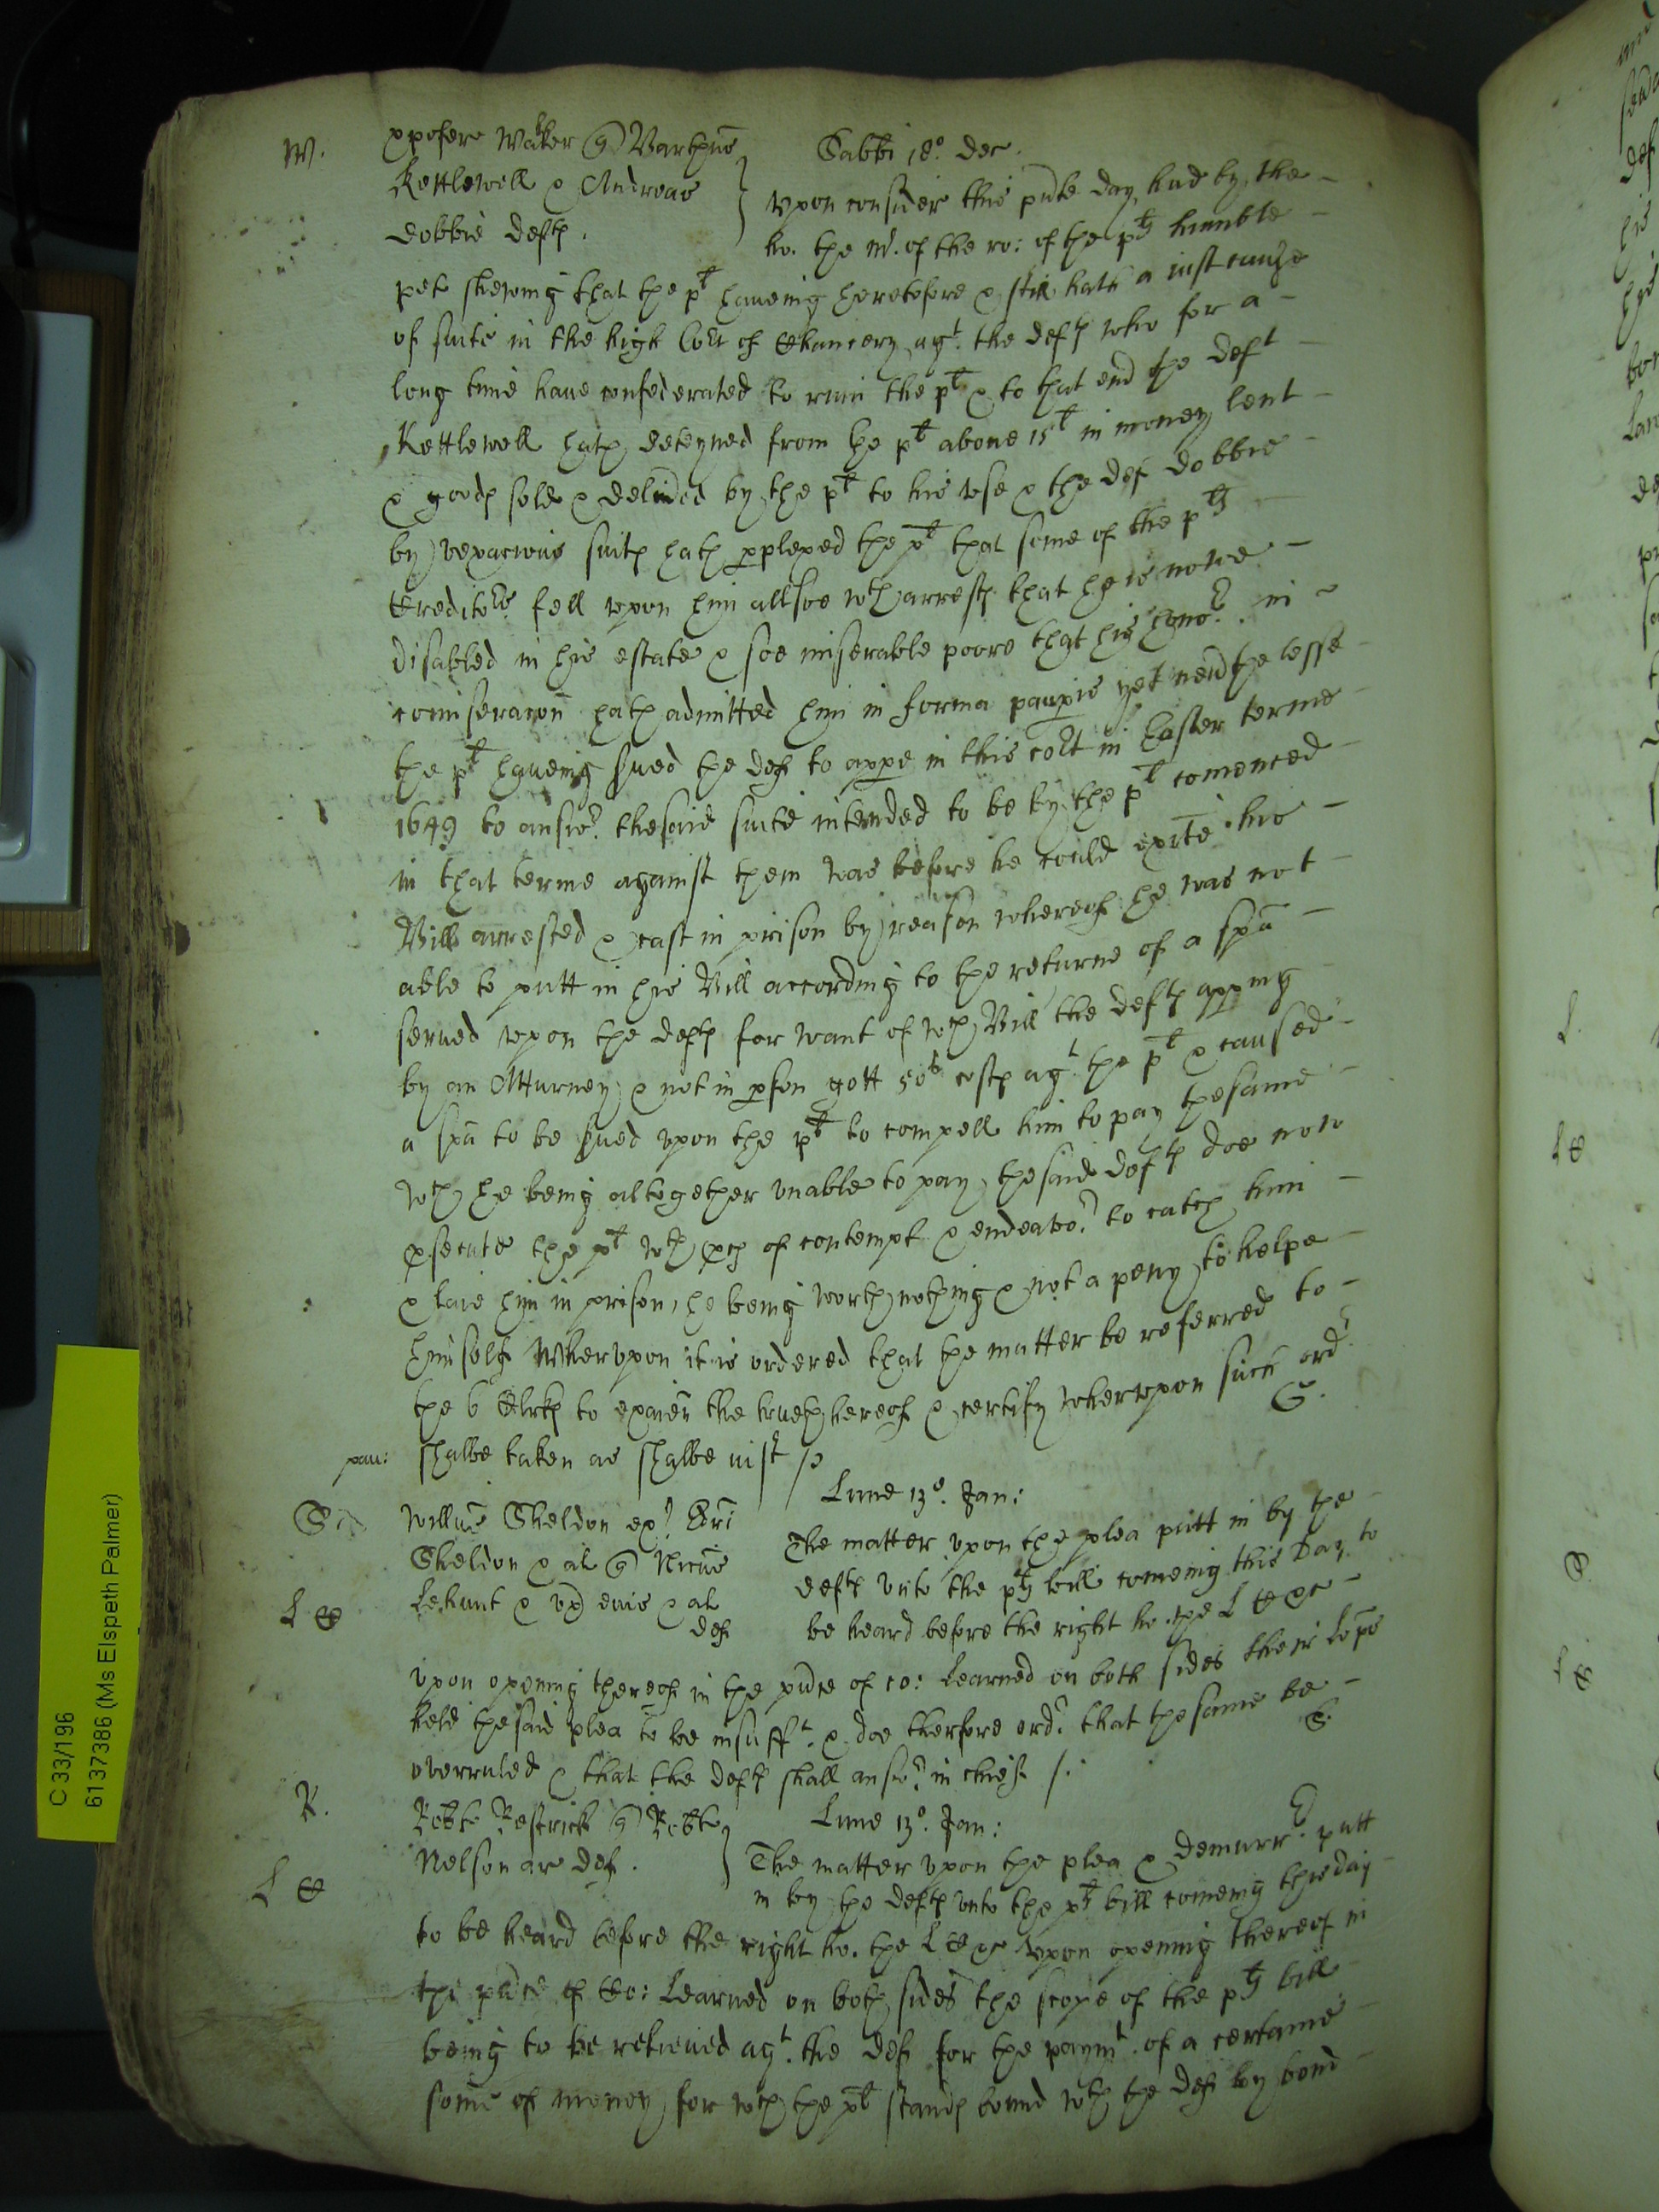 W.
Xpofere Walker @ Marthus Sabbi 18º. Dec.
Kettlewell & Andreas } Upon consider this pnte day had by the
Dobbie defts. ho. the Mr. of the ro: of the plts humble
peto shewing that the plt haveing heretofore & still hath a just cause
of suite in the high Cort of Chancery agt. the defts who for a
long time have confederated to ruin the plt & to that end the deft
Kettlewell hath deteyned from the plt above 15l in money lent
& goods sold & delived by the plt to his use & the def Dobbie
by vexacious suits hath pplexed the plt that some of the plts
Creditors. fell upon him allsoe wth arrests that he is nowe
disabled in his estate & soe miserable poore that his honor. in
comiseracon hath admitted him in forma paupis yet nevthelesse
the plt haveing sued the def to appe in this cort in Easter terme
1649 to answr. thesaid suite intended to be by the plt comenced
in that terme against them was before he could exhite his
Bill arrested & cast in prison by reason whereof he was not
able to putt in his Bill according to the returne of a spa
served upon the defts for want of wch Bill the defts apping
by an Atturney & not in pson gott 50s costs agt. the plt & caused
a spa to be sued upon the plt to compell him to pay thesame
wch he being altogether unable to pay thesaid defts doe now
psecute the plt wth pces of contempt & endeavor. to catch him
& laie him in prison, he being worth nothing & not a peny to helpe
himself Wherupon it is ordered that the matter be referred to
the 6 Clrks to examen the trueth hereof & certify wherupon such ordr
pau: shalbe taken as shalbe just /
Lune 13º. Jan:
S
Willus Sheldon exr Edri The matter upon the plea putt in by the
Sheldon & al @ Nicus defts unto the plts bill comeing this day to
L C
Lehunt & ux eius & al be heard before the right ho. the L C &c
def
upon opening thereof in the pnce of co: Learned on both sides their Lopps
held thesaid plea to be insufft. & doe therfore ordr. that thesame be
overruled & that the defts shall answr. in chief /.
R.
Robte Restrick @ Robte } Lune 13º. Jan:
Nelson ar def. The matter upon the plea & demurrr. putt
L C
in by the defts unto the plts bill comeing this day
to be heard before the right ho. the L C &c Upon opening thereof in
the pnce of Co: Learned on both sides the scope of the plts bill
being to be releived agt. the def for the paymt. of a certaine
some of money for wch the plt stands bound wth the def by bond
C 33/1196
6137386 (Ms Elspeth Palmer)